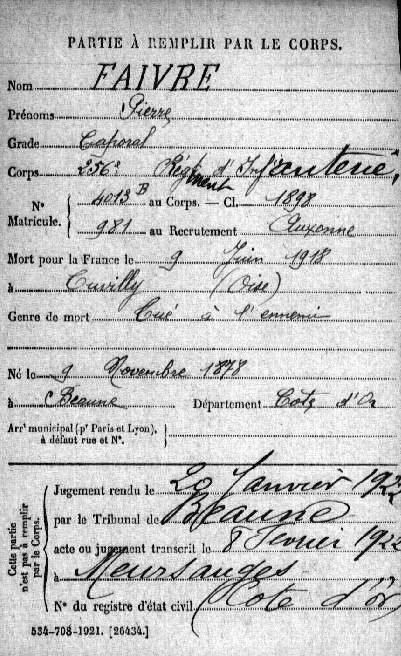 PARTIE À REMPLIR PAR LE CORPS.
Nom FAIVRE
Prénoms Pierre
Grade Caporal
Corps 256e Régiment d'Infanterie
N° Matricule. { 4013 B au Corps. — Cl. 1898
981 au Recrutement Auxonne
Mort pour la France le 9 Juin 1918
à Cuvilly (Oise)
Genre de mort Tué à l'ennemi
Né le 9 Novembre 1878
à Beaune Département Côte d'Or
Arrt municipal (pr Paris et Lyon),
à défaut rue et N°.
Cette partie n'est pas à remplir par le Corps.
Jugement rendu le 20 Janvier 1922
par le Tribunal de Beaune
acte ou jugement transcrit le 8 Fevrier 1922
à Meursanges
N° du registre d'état civil (Côte d'Or)
534-708-1921. [26434.]